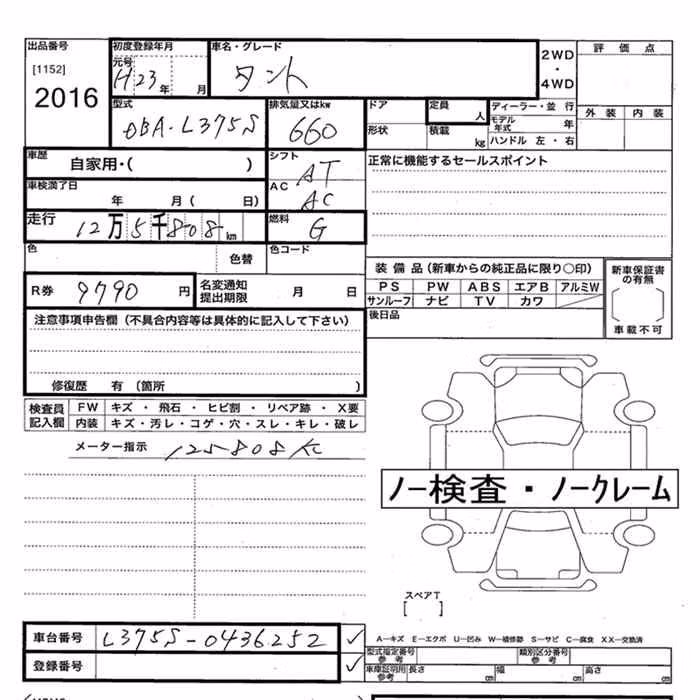 出品番号
[1152]
2016
初度登録年月
元号
H23年 月
車名・グレード
タント
2WD
・
4WD
評価点
外装 内装
型式
DBA-L375S
排気量又はkw
660
ドア
形状
定員 人
積載 kg
ディーラー・並行
モデル年式 年
ハンドル 左・右
車歴
自家用・( )
シフト
AT
正常に機能するセールスポイント
車検満了日
年 月( 日)
AC
AC
走行
12万5千808km
燃料
G
色
色替
色コード
R券
9790円
名変通知
提出期限
月 日
装備品(新車からの純正品に限り○印)
PS PW ABS エアB アルミW
サンルーフ ナビ TV カワ
新車保証書
の有無
車載不可
後日品
注意事項申告欄(不具合内容等は具体的に記入して下さい)
修復歴 有(箇所 )
検査員
記入欄
FW キズ・飛石・ヒビ割・リペア跡・X要
内装 キズ・汚レ・コゲ・穴・スレ・キレ・破レ
メーター指示 125808K
ノー検査・ノークレーム
スペアT
[ ]
車台番号 L375S-0436252 ✓
登録番号 ✓
A-キズ E-エクボ U-凹み W-補修跡 S-サビ C-腐食 XX-交換済
型式指定番号
参考
類別区分番号
参考
車庫証明用
参考
長さ cm 幅 cm 高さ cm